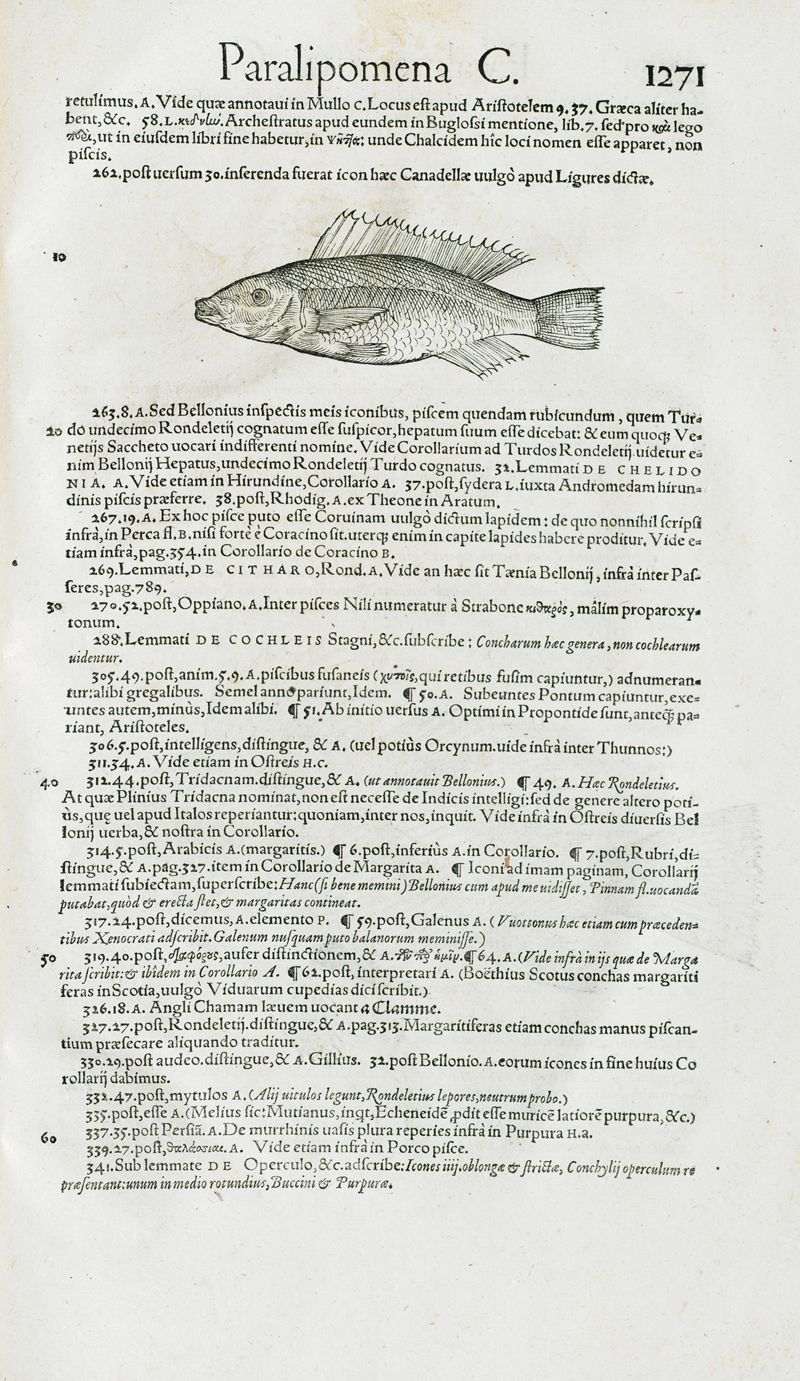 Paralipomena C. 1271
retulimus. A. Vide quæ annotaui in Mullo c. Locus est apud Aristotelem 9. 37. Græca aliter ha-
bent, &c. 58. L. Archestratus apud eundem in Buglossi mentione, lib. 7. sed pro καὶ lego
ut in eiusdem libri fine habetur, in unde Chalcidem hîc loci nomen esse apparet, non
piscis.
262. post uersum 30. inserenda fuerat icon hæc Canadellæ uulgò apud Ligures dictæ.
10
263. 8. A. Sed Bellonius inspectis meis iconibus, piscem quendam rubicundum, quem Tur-
20 do undecimo Rondeletij cognatum esse suspicor, hepatum suum esse dicebat: & eum quoq; Ve-
netijs Saccheto uocari indifferenti nomine. Vide Corollarium ad Turdos Rondeletij. uidetur e-
nim Bellonij Hepatus, undecimo Rondeletij Turdo cognatus. 32. Lemmati DE CHELIDO
NIA. A. Vide etiam in Hirundine, Corollario A. 37. post, sydera L. iuxta Andromedam hirun-
dinis piscis præferre. 38. post, Rhodig. A. ex Theone in Aratum.
267. 19. A. Ex hoc pisce puto esse Coruinam uulgò dictum lapidem: de quo nonnihil scripsi
infrà, in Perca fl. B. nisi fortè è Coracino sit. uterq; enim in capite lapides habere proditur. Vide e-
tiam infrà, pag. 354. in Corollario de Coracino B.
269. Lemmati, DE CITHARO, Rond. A. Vide an hæc sit Tænia Bellonij, infrà inter Pas-
seres, pag. 789.
30 270. 52. post, Oppiano. A. Inter pisces Nili numeratur à Strabone κιθαρὸς, mâlim proparoxy-
tonum.
288. Lemmati DE COCHLEIS Stagni, &c. subscribe: Concharum hæc genera, non cochlearum
uidentur.
305. 49. post, anim. 5. 9. A. piscibus fusaneis (χυτοῖς, qui retibus fusim capiuntur,) adnumeran-
tur: alibi gregalibus. Semel anno pariunt, Idem. ¶ 50. A. Subeuntes Pontum capiuntur, exe-
untes autem, minùs, Idem alibi. ¶ 51. Ab initio uersus A. Optimi in Propontide sunt, anteq̃ pa-
riant, Aristoteles.
306. 5. post, intelligens, distingue, & A. (uel potiùs Orcynum. uide infrà inter Thunnos:)
311. 34. A. Vide etiam in Ostreis H. c.
40 312. 44. post, Tridacnam. distingue, & A. (ut annotauit Bellonius.) ¶ 49. A. Hæc Rondeletius.
At quæ Plinius Tridacna nominat, non est necesse de Indicis intelligi: sed de genere altero poti-
ùs, quę uel apud Italos reperiantur: quoniam, inter nos, inquit. Vide infrà in Ostreis diuersis Bel
lonij uerba, & nostra in Corollario.
314. 5. post, Arabicis A. (margaritis.) ¶ 6. post, inferiùs A. in Corollario. ¶ 7. post, Rubri, di-
stingue, & A. pag. 327. item in Corollario de Margarita A. ¶ Iconi ad imam paginam, Corollarij
lemmati subiectam, superscribe: Hanc (si bene memini) Bellonius cum apud me uidisset, Pinnam fl. uocandã
putabat, quòd & erecta stet, & margaritas contineat.
317. 24. post, dicemus, A. elemento P. ¶ 59. post, Galenus A. (Vuottonus hæc etiam cum præceden-
tibus Xenocrati adscribit. Galenum nusquam puto balanorum meminisse.)
50 319. 40. post, aufer distinctionem, & A. ¶ 64. A. (Vide infrà in ijs quæ de Marga
rita scribit: & ibidem in Corollario A. ¶ 62. post, interpretari A. (Boëthius Scotus conchas margariti
feras in Scotia, uulgò Viduarum cupedias dici scribit.)
326. 18. A. Angli Chamam læuem uocant a Clamme.
327. 27. post, Rondeletij. distingue, & A. pag. 313. Margaritiferas etiam conchas manus piscan-
tium præsecare aliquando traditur.
330. 29. post audeo. distingue, & A. Gillius. 32. post Bellonio. A. eorum icones in fine huius Co
rollarij dabimus.
332. 47. post, mytulos A. (Alij uitulos legunt, Rondeletius lepores, neutrum probo.)
335. post, esse A. (Melius sic: Mutianus, inqt, Echeneidẽ ꝓdit esse muricẽ latiorẽ purpura, &c.)
60 337. 35. post Persiã. A. De murrhinis uasis plura reperies infrà in Purpura H. a.
339. 27. post, θαλάσσιαι. A. Vide etiam infrà in Porco pisce.
341. Sub lemmate DE Operculo, &c. adscribe: Icones iiij. oblongæ & strictæ, Conchylij operculum re
præsentant: unum in medio rotundius, Buccini & Purpuræ.